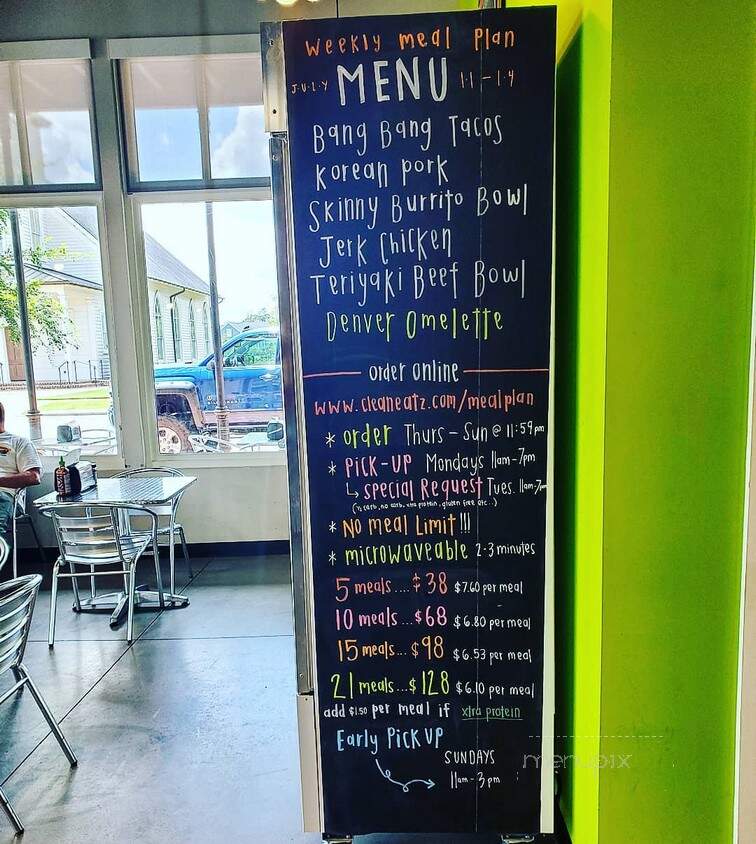 weekly meal plan
JULY MENU 11-14
Bang Bang Tacos
Korean pork
Skinny Burrito Bowl
Jerk Chicken
Teriyaki Beef Bowl
Denver Omelette
order online
www.cleaneatz.com/mealplan
* order Thurs - Sun @ 11:59pm
* Pick-up Mondays 11am-7pm
↳ special Request Tues. 11am-7pm
(½ carb, no carb, xtra protein, gluten free etc..)
* No meal Limit!!!
* microwaveable 2-3 minutes
5 meals.... $38 $7.60 per meal
10 meals...$68 $6.80 per meal
15 meals... $98 $6.53 per meal
21 meals...$128 $6.10 per meal
add $1.50 per meal if xtra protein
Early Pick up
SUNDAYS
11am-3pm
menupix